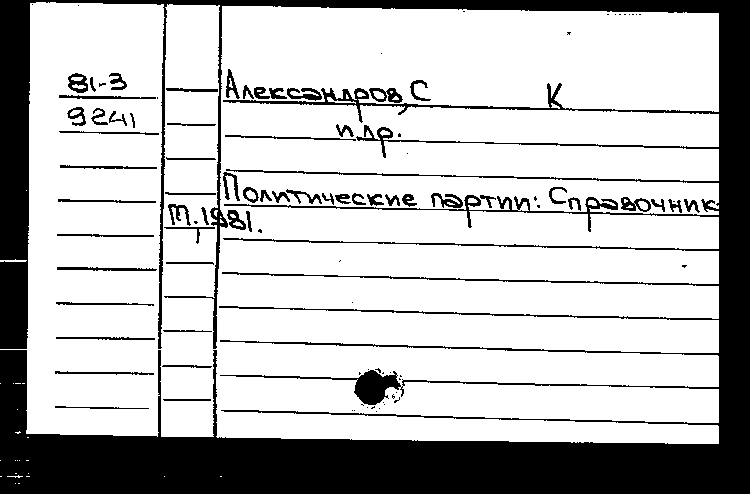 81-3
9241
Александров, С К
и др.
Политические партии: Справочник
М., 1981.